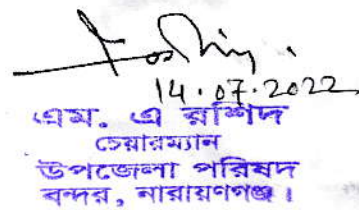 14.07.2022
এম. এ রশিদ
চেয়ারম্যান
উপজেলা পরিষদ
বন্দর, নারায়ণগঞ্জ।